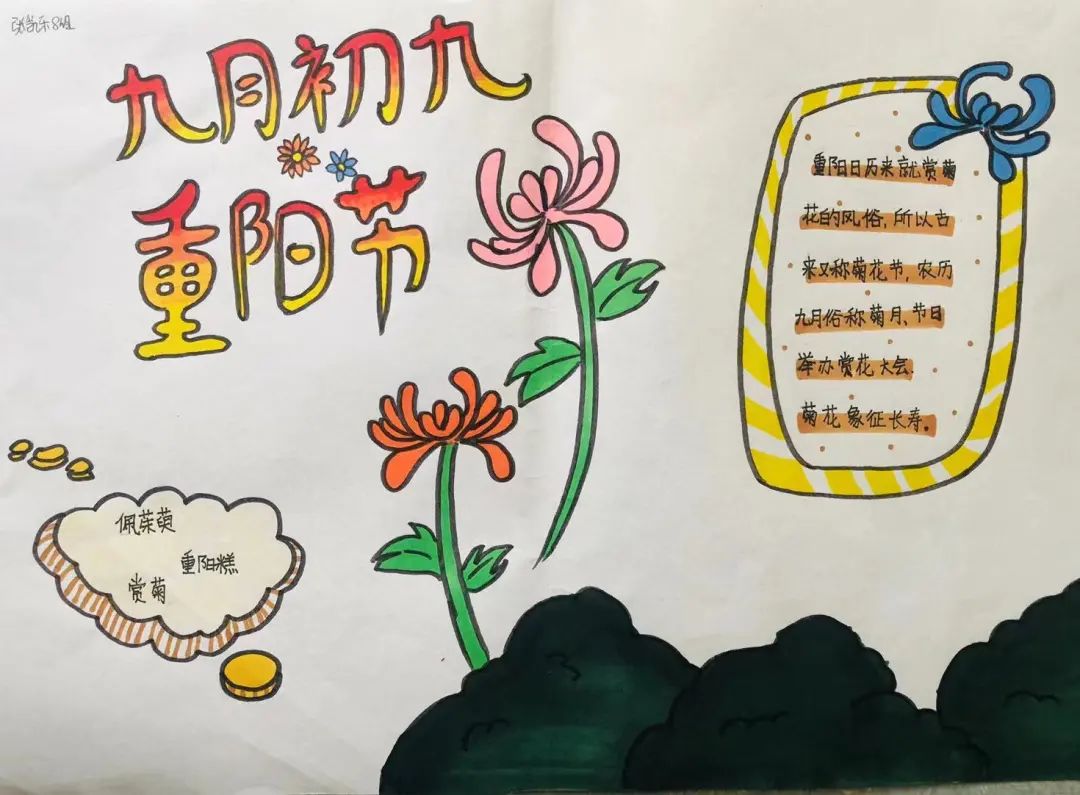 九月初九
重阳节
重阳日历来就赏菊
花的风俗,所以古
来又称菊花节,农历
九月俗称菊月、节日
举办赏花大会.
菊花象征长寿。
重阳糕
赏菊